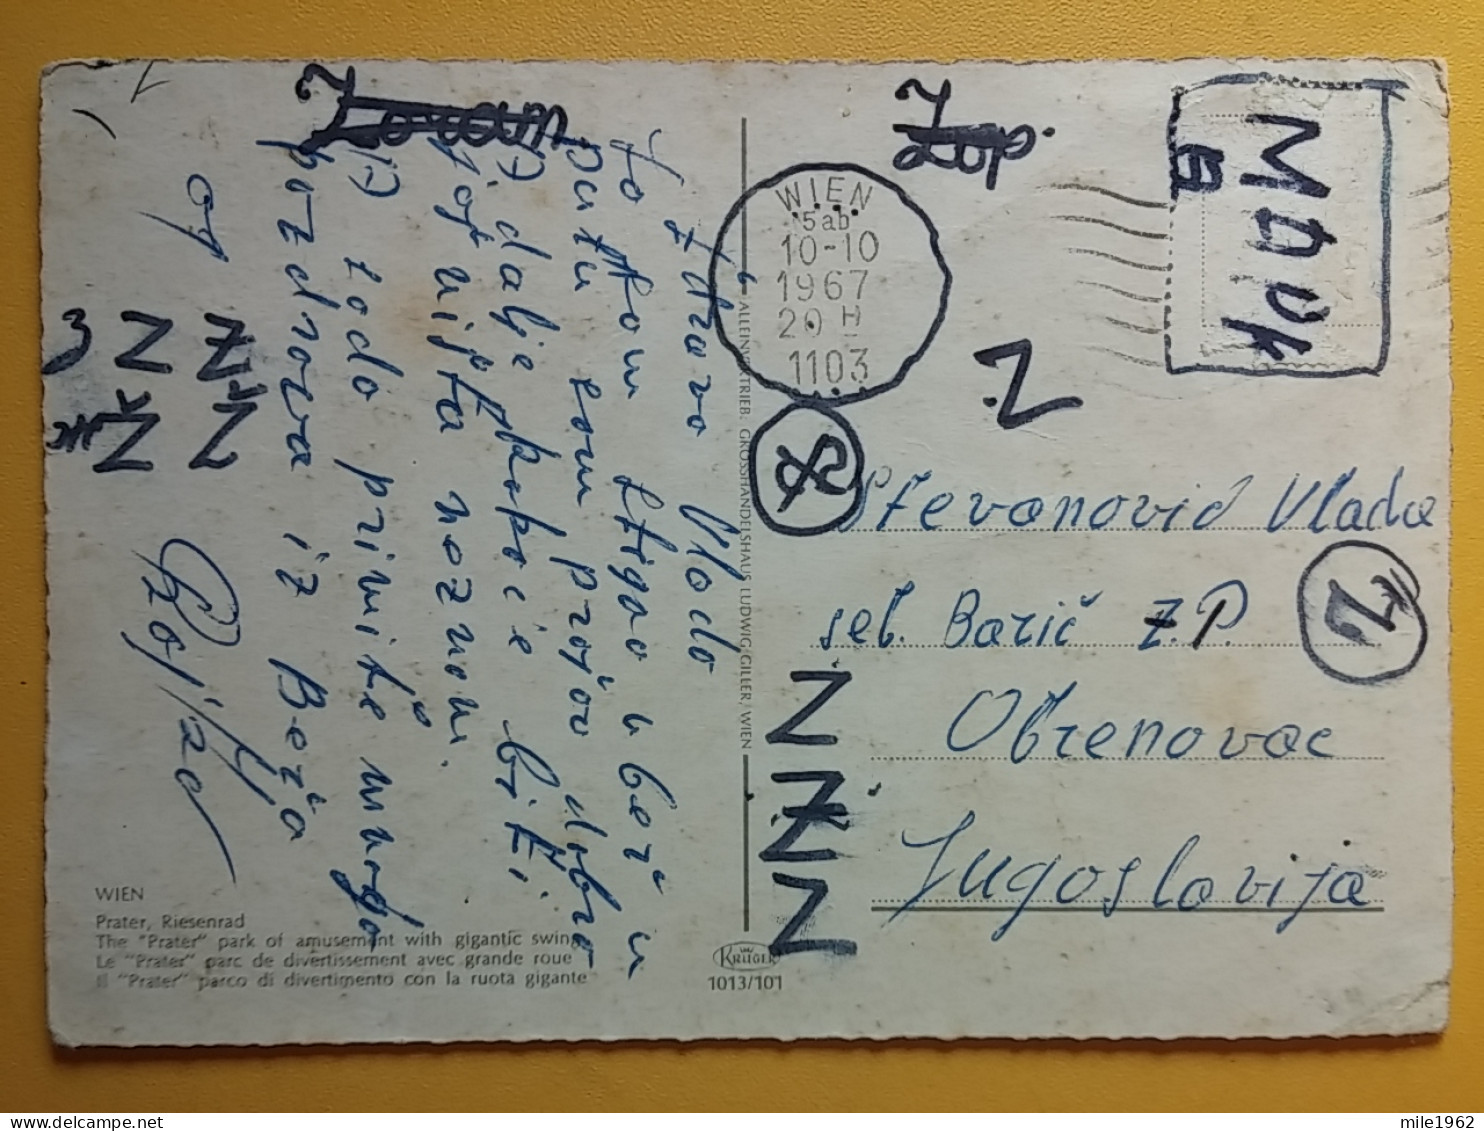 Zdravo Vlado
Ja sam stigao u beč u
putu sam prošao dobro
A dalje kako će biti
još ništa neznam.
A sada primite mnogo
pozdrava iz Beča
od
WIEN
Prater, Riesenrad
The "Prater" park of amusement with gigantic swing
Le "Prater" parc de divertissement avec grande roue
Il "Prater" parco di divertimento con la ruota gigante
ALLEINVERTRIEB: GROSSHANDELSHAUS LUDWIG GILLER, WIEN
KRUGER
1013/101
WIEN
5ab
10-10
1967
20 H
1103
Stevanović Vlada
sel. Barič Z.P.
Obrenovac
Jugoslavija
N
Z
Z
Z
mile1962